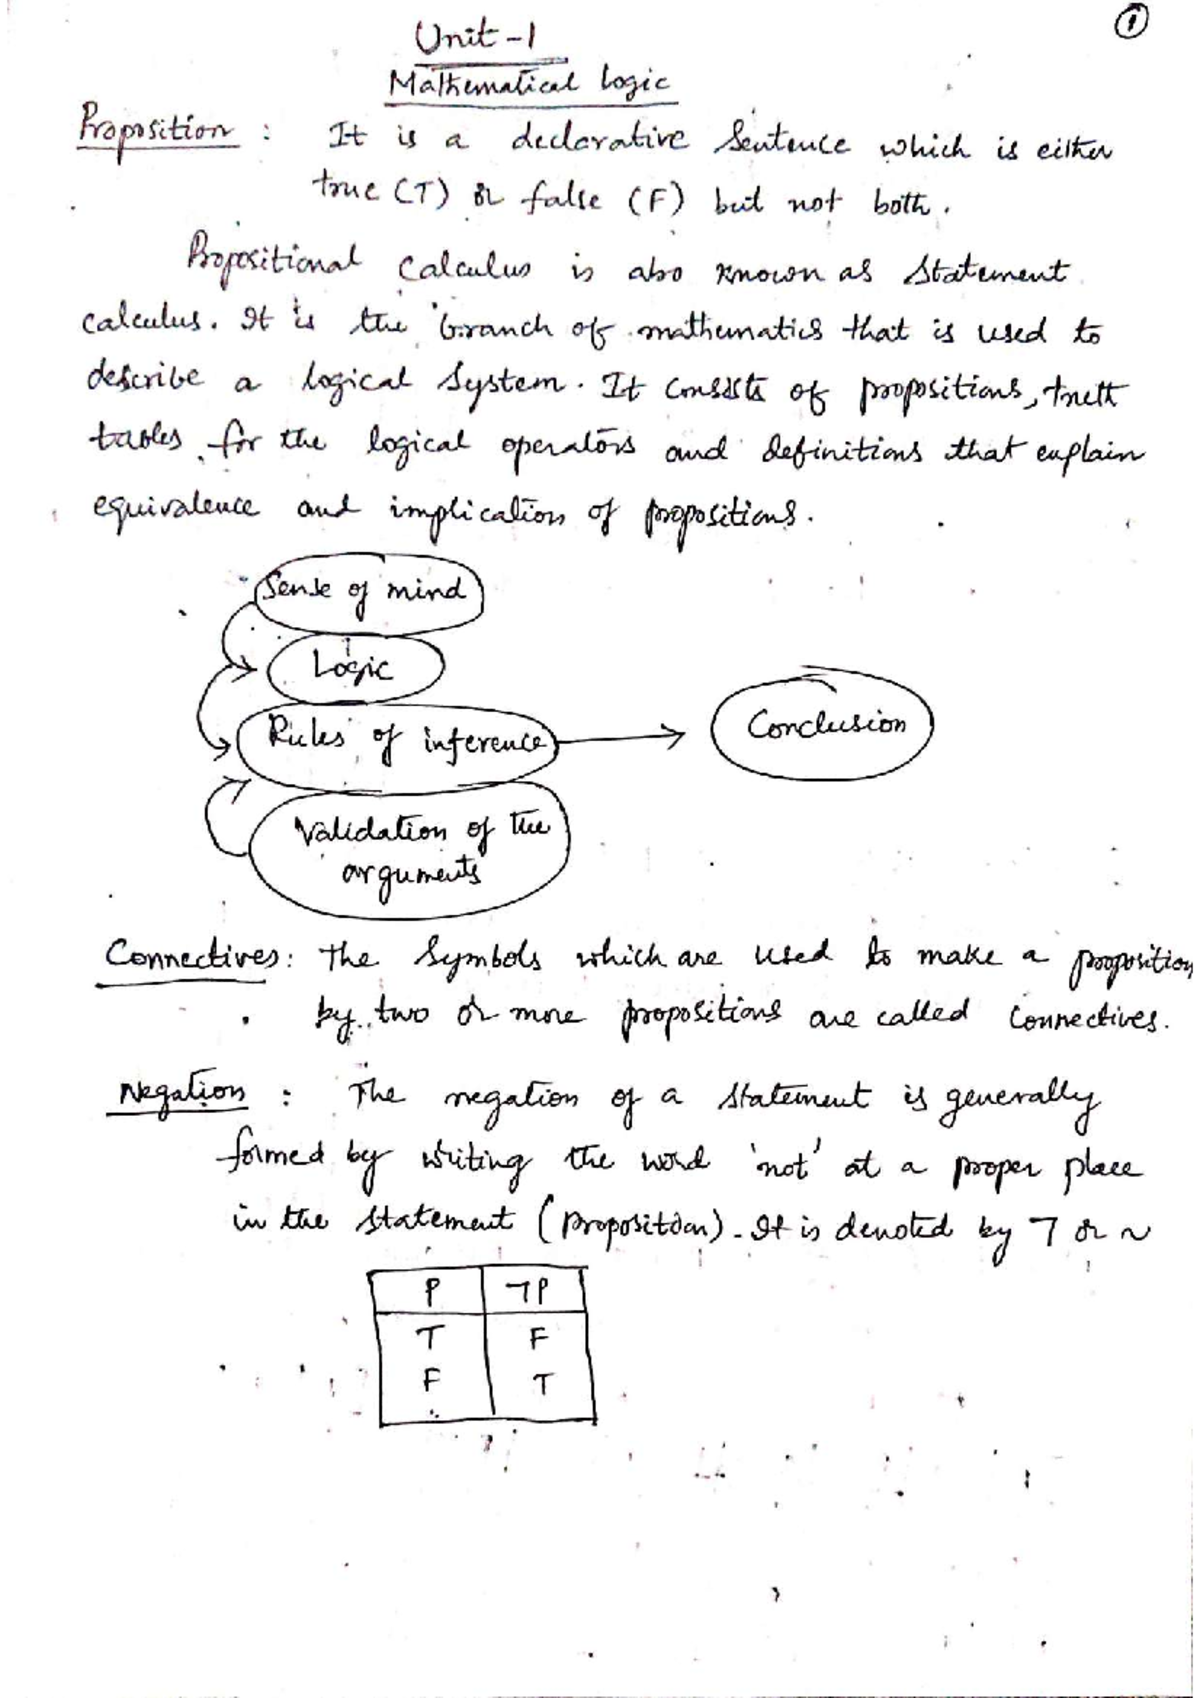 1
Unit-1
Mathematical Logic
Proposition : It is a declarative Sentence which is either
true (T) or false (F) but not both.
Propositional Calculus is also known as Statement
calculus. It is the branch of mathematics that is used to
describe a logical System. It consists of propositions, truth
tables for the logical operators and definitions that explain
equivalence and implication of propositions.
Sense of mind
Logic
Rules of inference
Conclusion
Validation of the
arguments
Connectives : The Symbols which are used to make a proposition
by two or more propositions are called Connectives.
Negation : The negation of a Statement is generally
formed by writing the word 'not' at a proper place
in the Statement (proposition). It is denoted by ㄱ or ~
P ㄱP
T F
F T